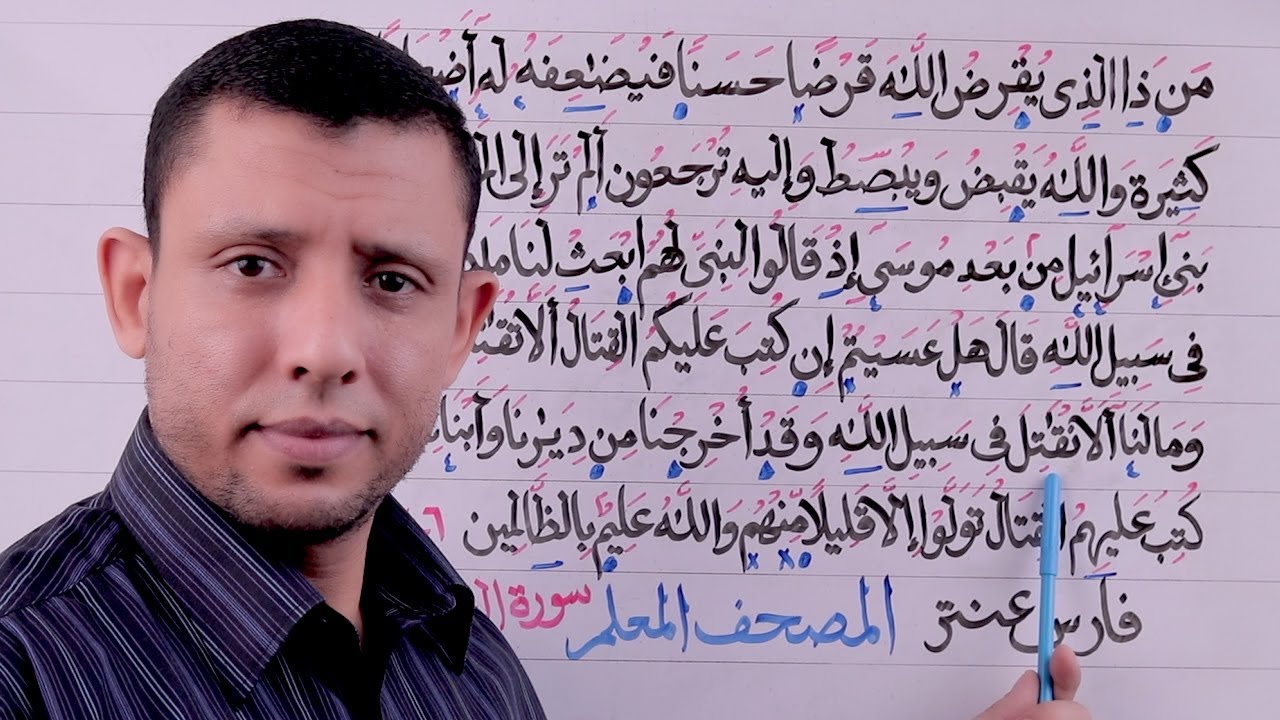 مَن ذَا الَّذِى يُقْرِضُ اللَّهَ قَرْضًا حَسَنًا فَيُضَٰعِفَهُ لَهُ
كَثِيرَةً وَاللَّهُ يَقْبِضُ وَيَبْصُّطُ وَإِلَيْهِ تُرْجَعُونَ أَلَمْ تَرَ إِلَى
بَنِىٓ إِسْرَآئِيلَ مِنۢ بَعْدِ مُوسَىٰٓ إِذْ قَالُوا لِنَبِىٍّ لَهُمُ ابْعَثْ لَنَا
فِى سَبِيلِ اللَّهِ قَالَ هَلْ عَسَيْتُمْ إِن كُتِبَ عَلَيْكُمُ الْقِتَالُ أَلَّا
وَمَا لَنَآ أَلَّا نُقَٰتِلَ فِى سَبِيلِ اللَّهِ وَقَدْ أُخْرِجْنَا مِن دِيَٰرِنَا
كُتِبَ عَلَيْهِمُ الْقِتَالُ تَوَلَّوْا إِلَّا قَلِيلًا مِّنْهُمْ وَاللَّهُ عَلِيمٌۢ بِالظَّالِمِينَ
فارس عنتر المصحف المعلم سورة